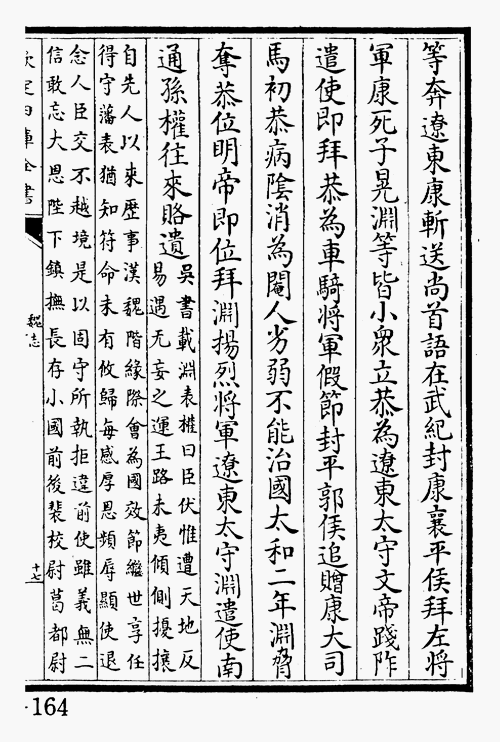 等奔遼東康斬送尚首語在武紀封康襄平侯拜左將
軍康死子晃淵等皆小衆立恭為遼東太守文帝踐阼
遣使即拜恭為車騎將軍假節封平郭侯追贈康大司
馬初恭病隂消為閹人劣弱不能治國太和二年淵脅
奪恭位明帝即位拜淵揚烈將軍遼東太守淵遣使南
通孫權往來賂遺
吳書載淵表權曰臣伏惟遭天地反
易遇无妄之運王路未夷傾側擾攘
自先人以來歴事漢魏階緣際會為國效節繼世享任
得守藩表猶知符命未有攸歸每感厚恩頻辱顯使退
念人臣交不越境是以固守所執拒違前使雖義無二
信敢忘大恩陛下鎮撫長存小國前後裴校尉葛都尉
欽定四庫全書
魏志
十七
164